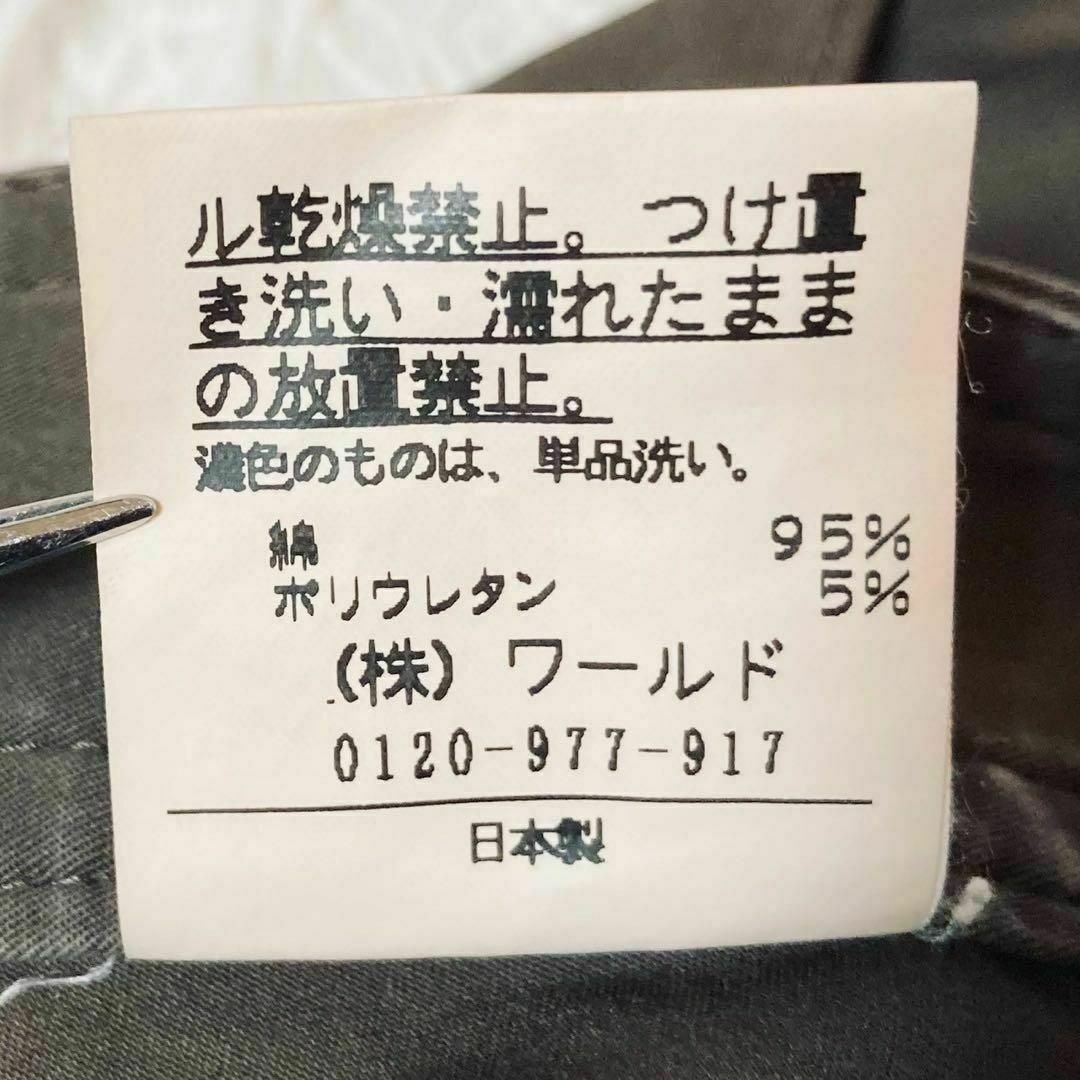 ル乾燥禁止。つけ置
き洗い・濡れたまま
の放置禁止。
濃色のものは、単品洗い。
綿 95%
ポリウレタン 5%
(株)ワールド
0120-977-917
日本製